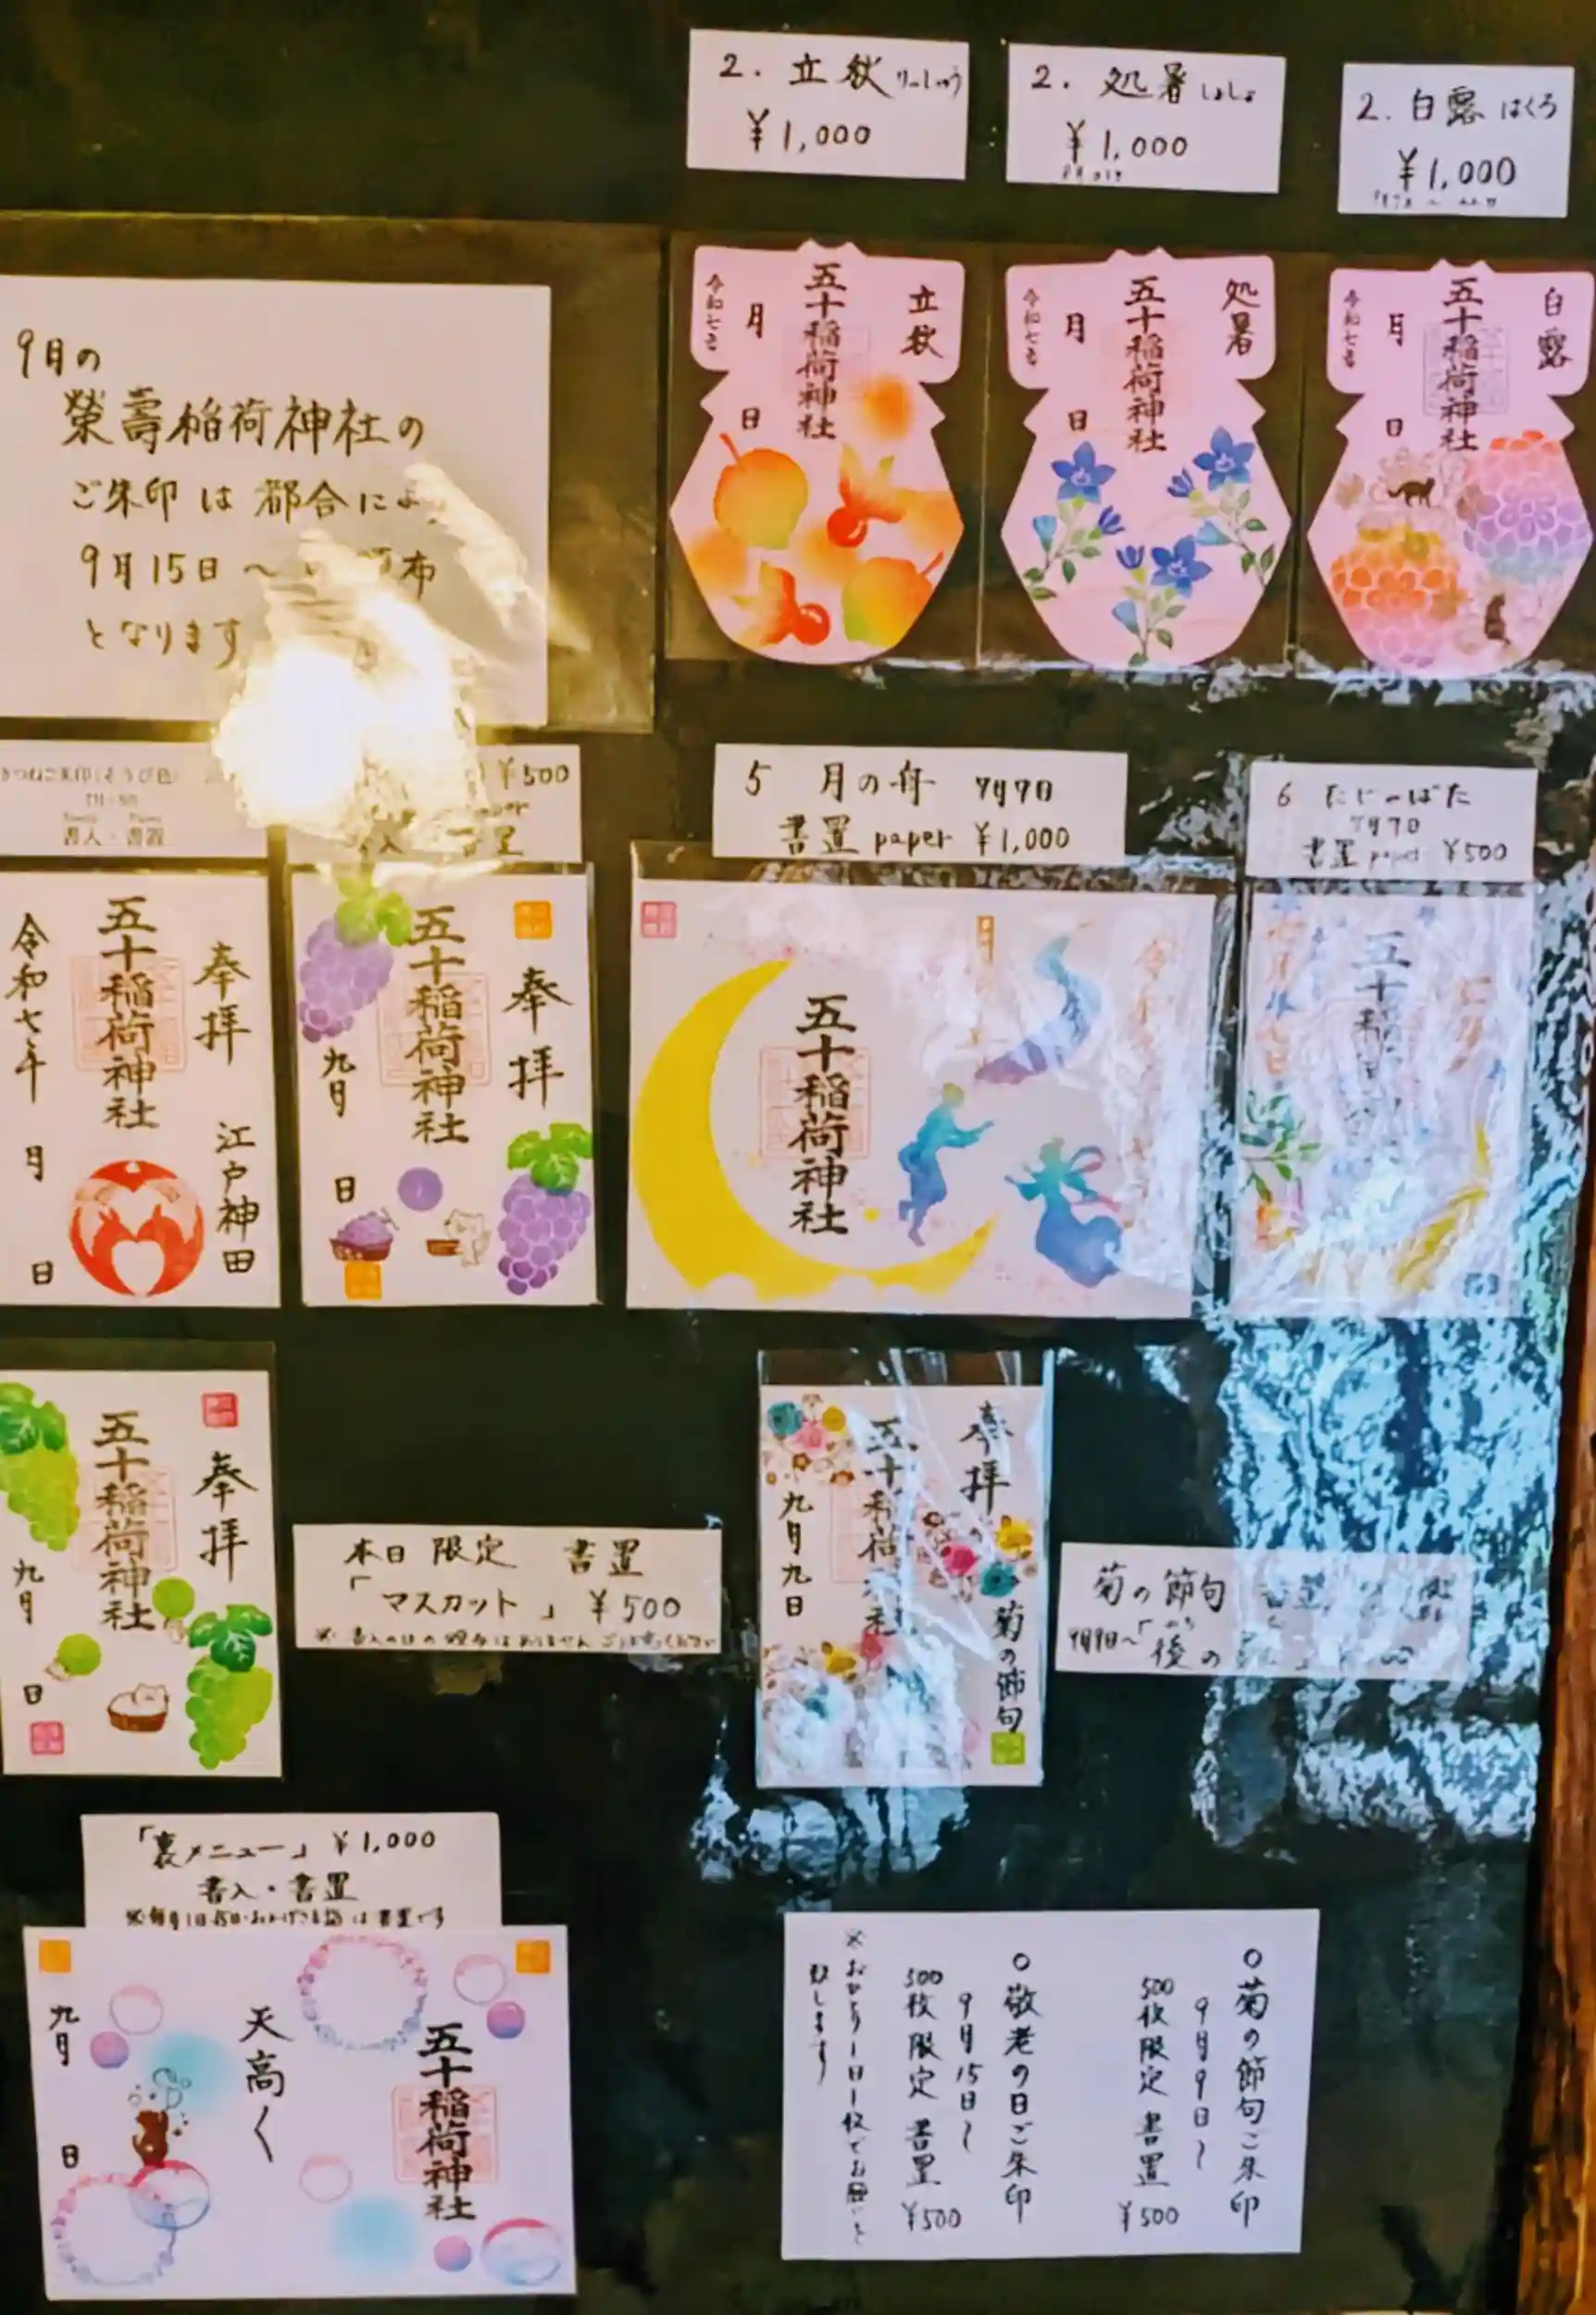 2. 立秋 りっしゅう
¥1,000
2. 処暑 しょしょ
¥1,000
2. 白露 はくろ
¥1,000
9月の
榮壽稲荷神社の
ご朱印は都合によ
9月15日〜
布
となります
立秋
五十稲荷神社
令和七年
月
日
処暑
五十稲荷神社
令和七年
月
日
白露
五十稲荷神社
令和七年
月
日
書入・書置
¥500
5 月の舟 7月7日
書置 paper ¥1,000
6 たなばた
7月7日
書置 paper ¥500
奉拝
江戸神田
五十稲荷神社
令和七年
月
日
奉拝
五十稲荷神社
九月
日
五十稲荷神社
五十稲荷神社
奉拝
五十稲荷神社
九月
日
本日限定 書置
「マスカット」 ¥500
奉拝
菊の節句
五十稲荷神社
九月九日
菊の節句
9月9日〜
後の
「裏メニュー」 ¥1,000
書入・書置
五十稲荷神社
天高く
九月
日
○菊の節句ご朱印
9月9日〜
500枚限定 書置 ¥500
○敬老の日ご朱印
9月15日〜
500枚限定 書置 ¥500
※おひとり1日1枚でお願いと
致します